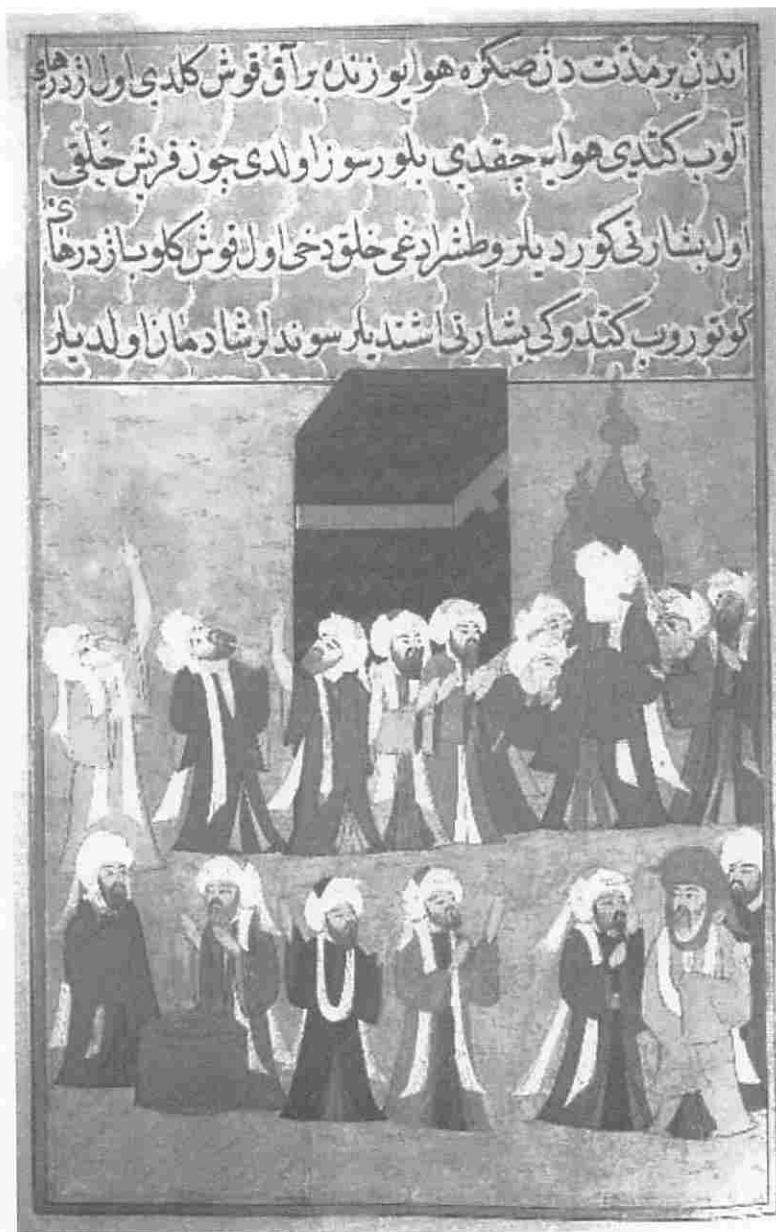 اندن بر مدّت دن صكره هوا یوزنده بر آق قوش كلدی اول ازدرهای
آلوب كتدی هوایه چقدی بلورسوز اولدی چون قریش خلقی
اول بشارتی كوردیلر و طشرادغی خلق دخی اول قوش كلوب ازدرهای
كوتوروب كتدوكی بشارتی اشتدیلر سوندلر شادمان اولدیلر